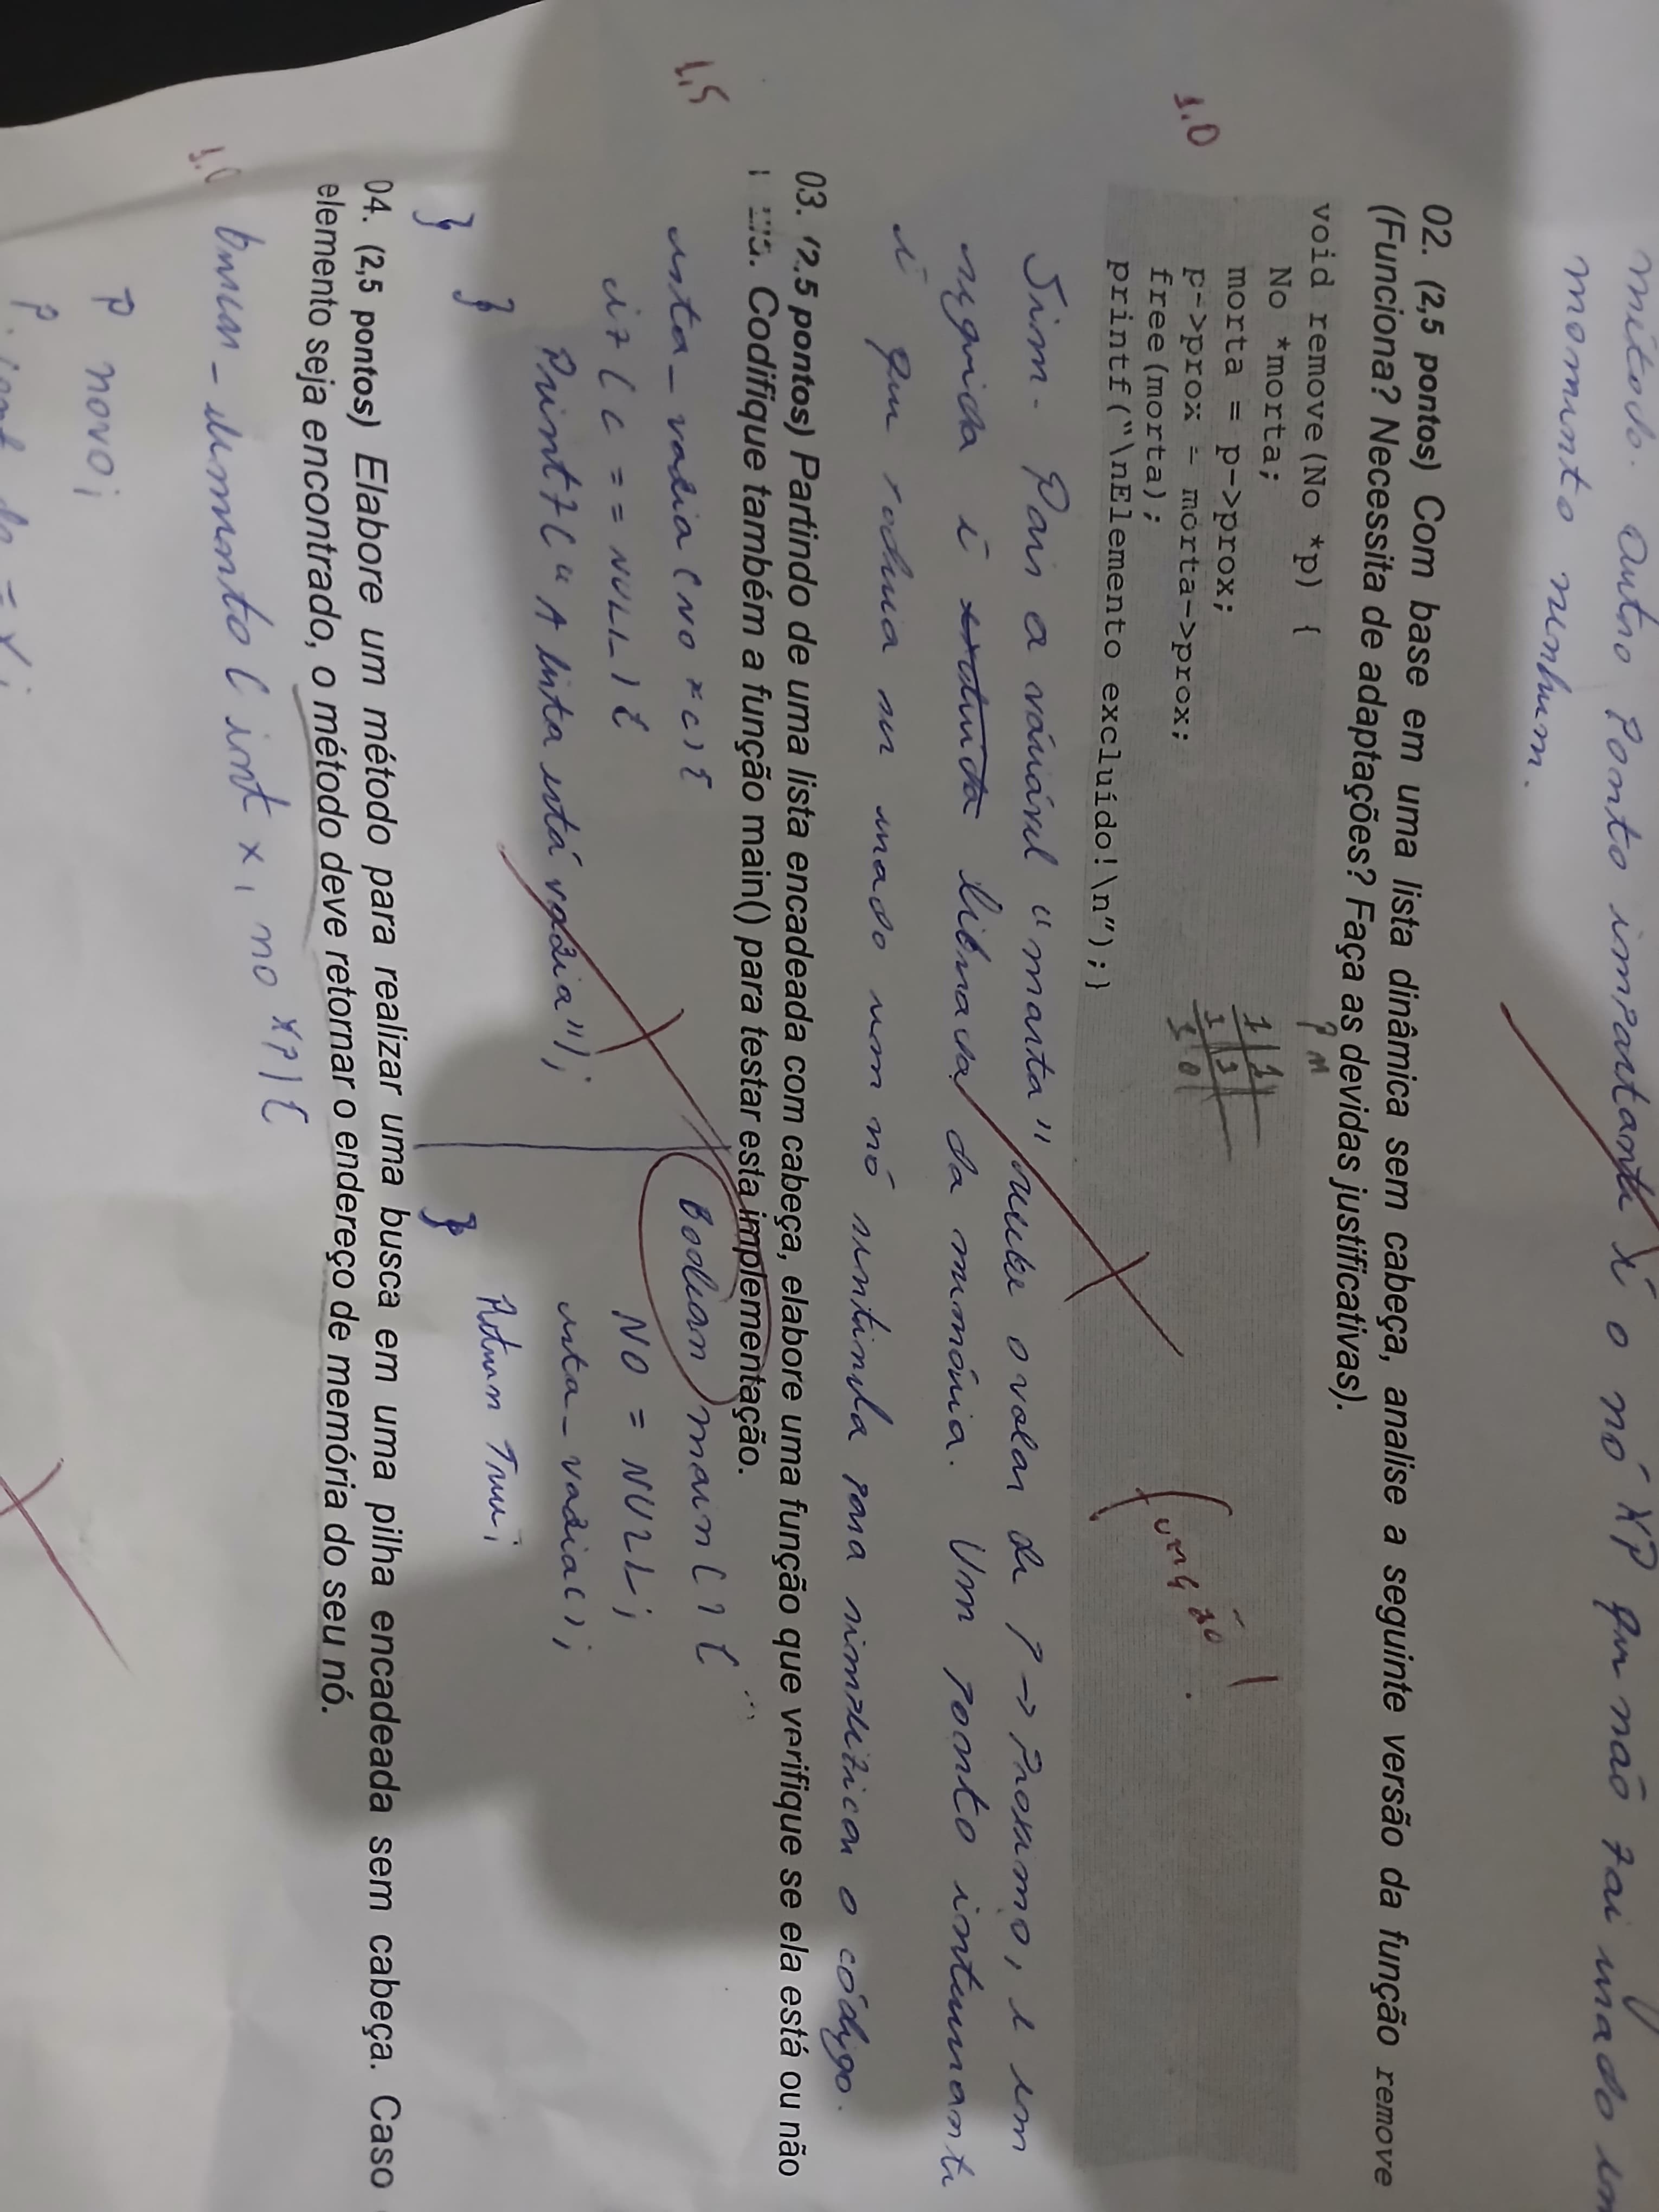 método. Outro ponto importante é o nó *P que não foi usado em
momento nenhum.
02. (2,5 pontos) Com base em uma lista dinâmica sem cabeça, analise a seguinte versão da função remove
(Funciona? Necessita de adaptações? Faça as devidas justificativas).
void remove(No *p) {
No *morta;
morta = p->prox;
p->prox = morta->prox;
free(morta);
printf("\nElemento excluído!\n");}
P M
1 1
1 1
1 0
função
1.0
Sim. Pois a váriável "morta" recebe o valor de P->Proximo, e em
seguida é liberada da memória. Um ponto interessante
é que poderia ser usado um nó sentinela para simplificar o código.
03. (2,5 pontos) Partindo de uma lista encadeada com cabeça, elabore uma função que verifique se ela está ou não
Codifique também a função main() para testar esta implementação.
1,5
esta_vazia(NO *c){
if(c == NULL){
Printf("A lista está vazia");
}
}
Boolean main(){
NO = NULL;
esta_vazia();
Return True;
}
04. (2,5 pontos) Elabore um método para realizar uma busca em uma pilha encadeada sem cabeça. Caso o
elemento seja encontrado, o método deve retornar o endereço de memória do seu nó.
1.0
busca_elemento(int x, no *P){
P novo;